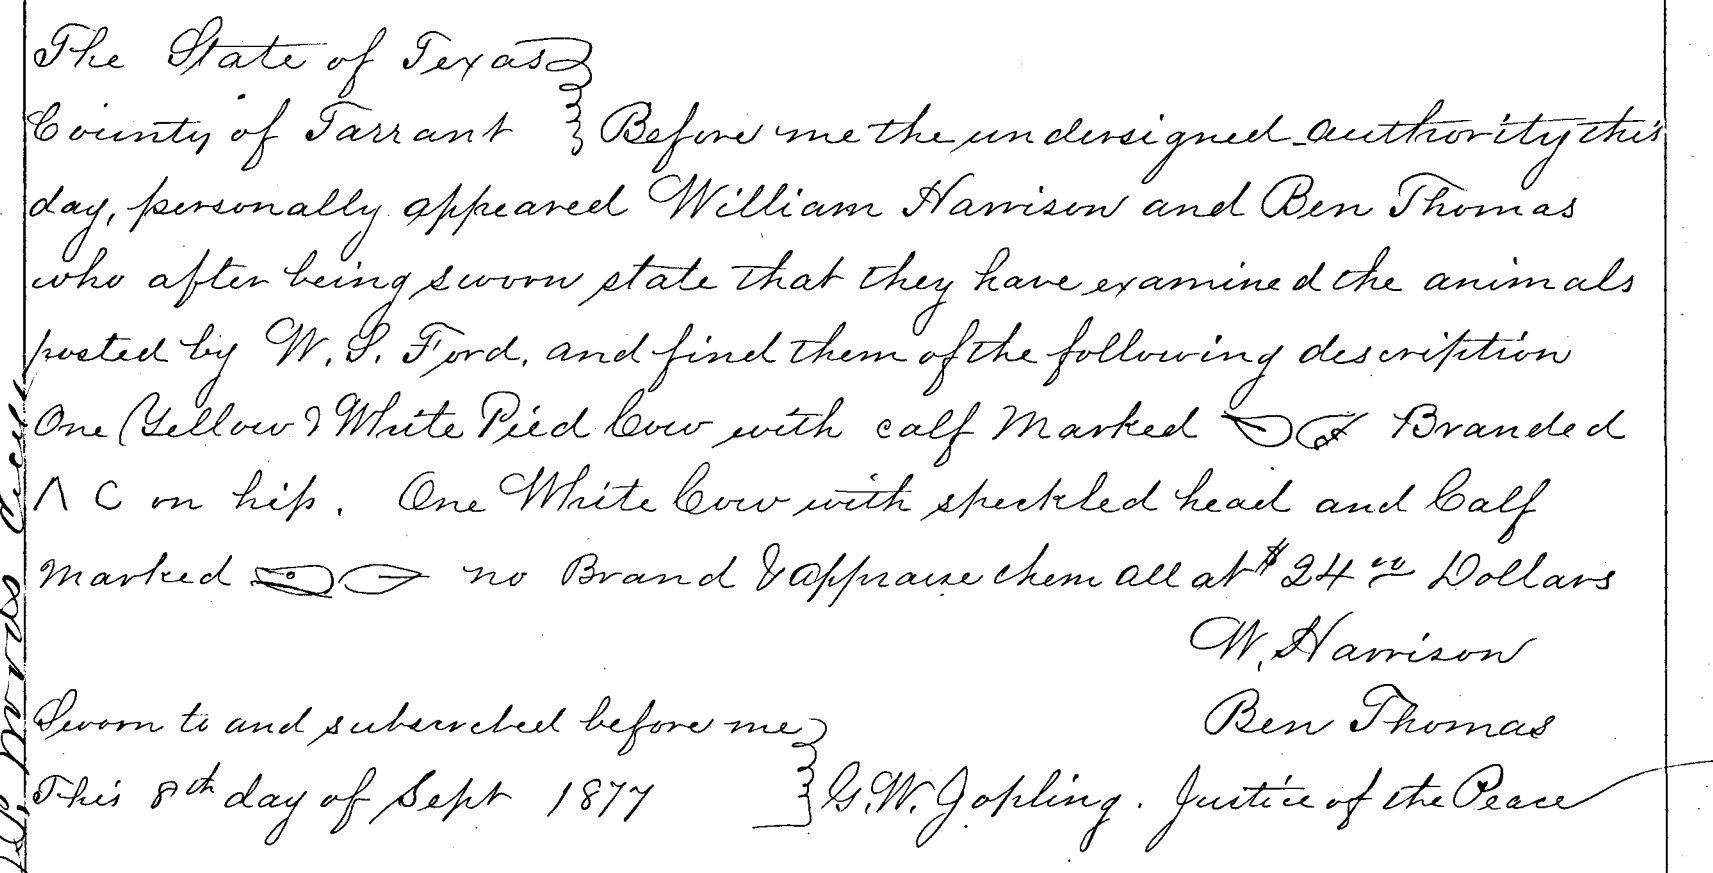 The State of Texas
County of Tarrant } Before me the undersigned authority this
day, personally appeared William Harrison and Ben Thomas
who after being sworn state that they have examined the animals
posted by W. S. Ford, and find them of the following description
One (Yellow & White Pied Cow with calf Marked Branded
Λ C on hip. One White Cow with speckled head and Calf
Marked no Brand & appraise them all at $24 00 Dollars
W. Harrison
Sworn to and subscribed before me Ben Thomas
This 8th day of Sept 1877 } G. W. Jopling. Justice of the Peace